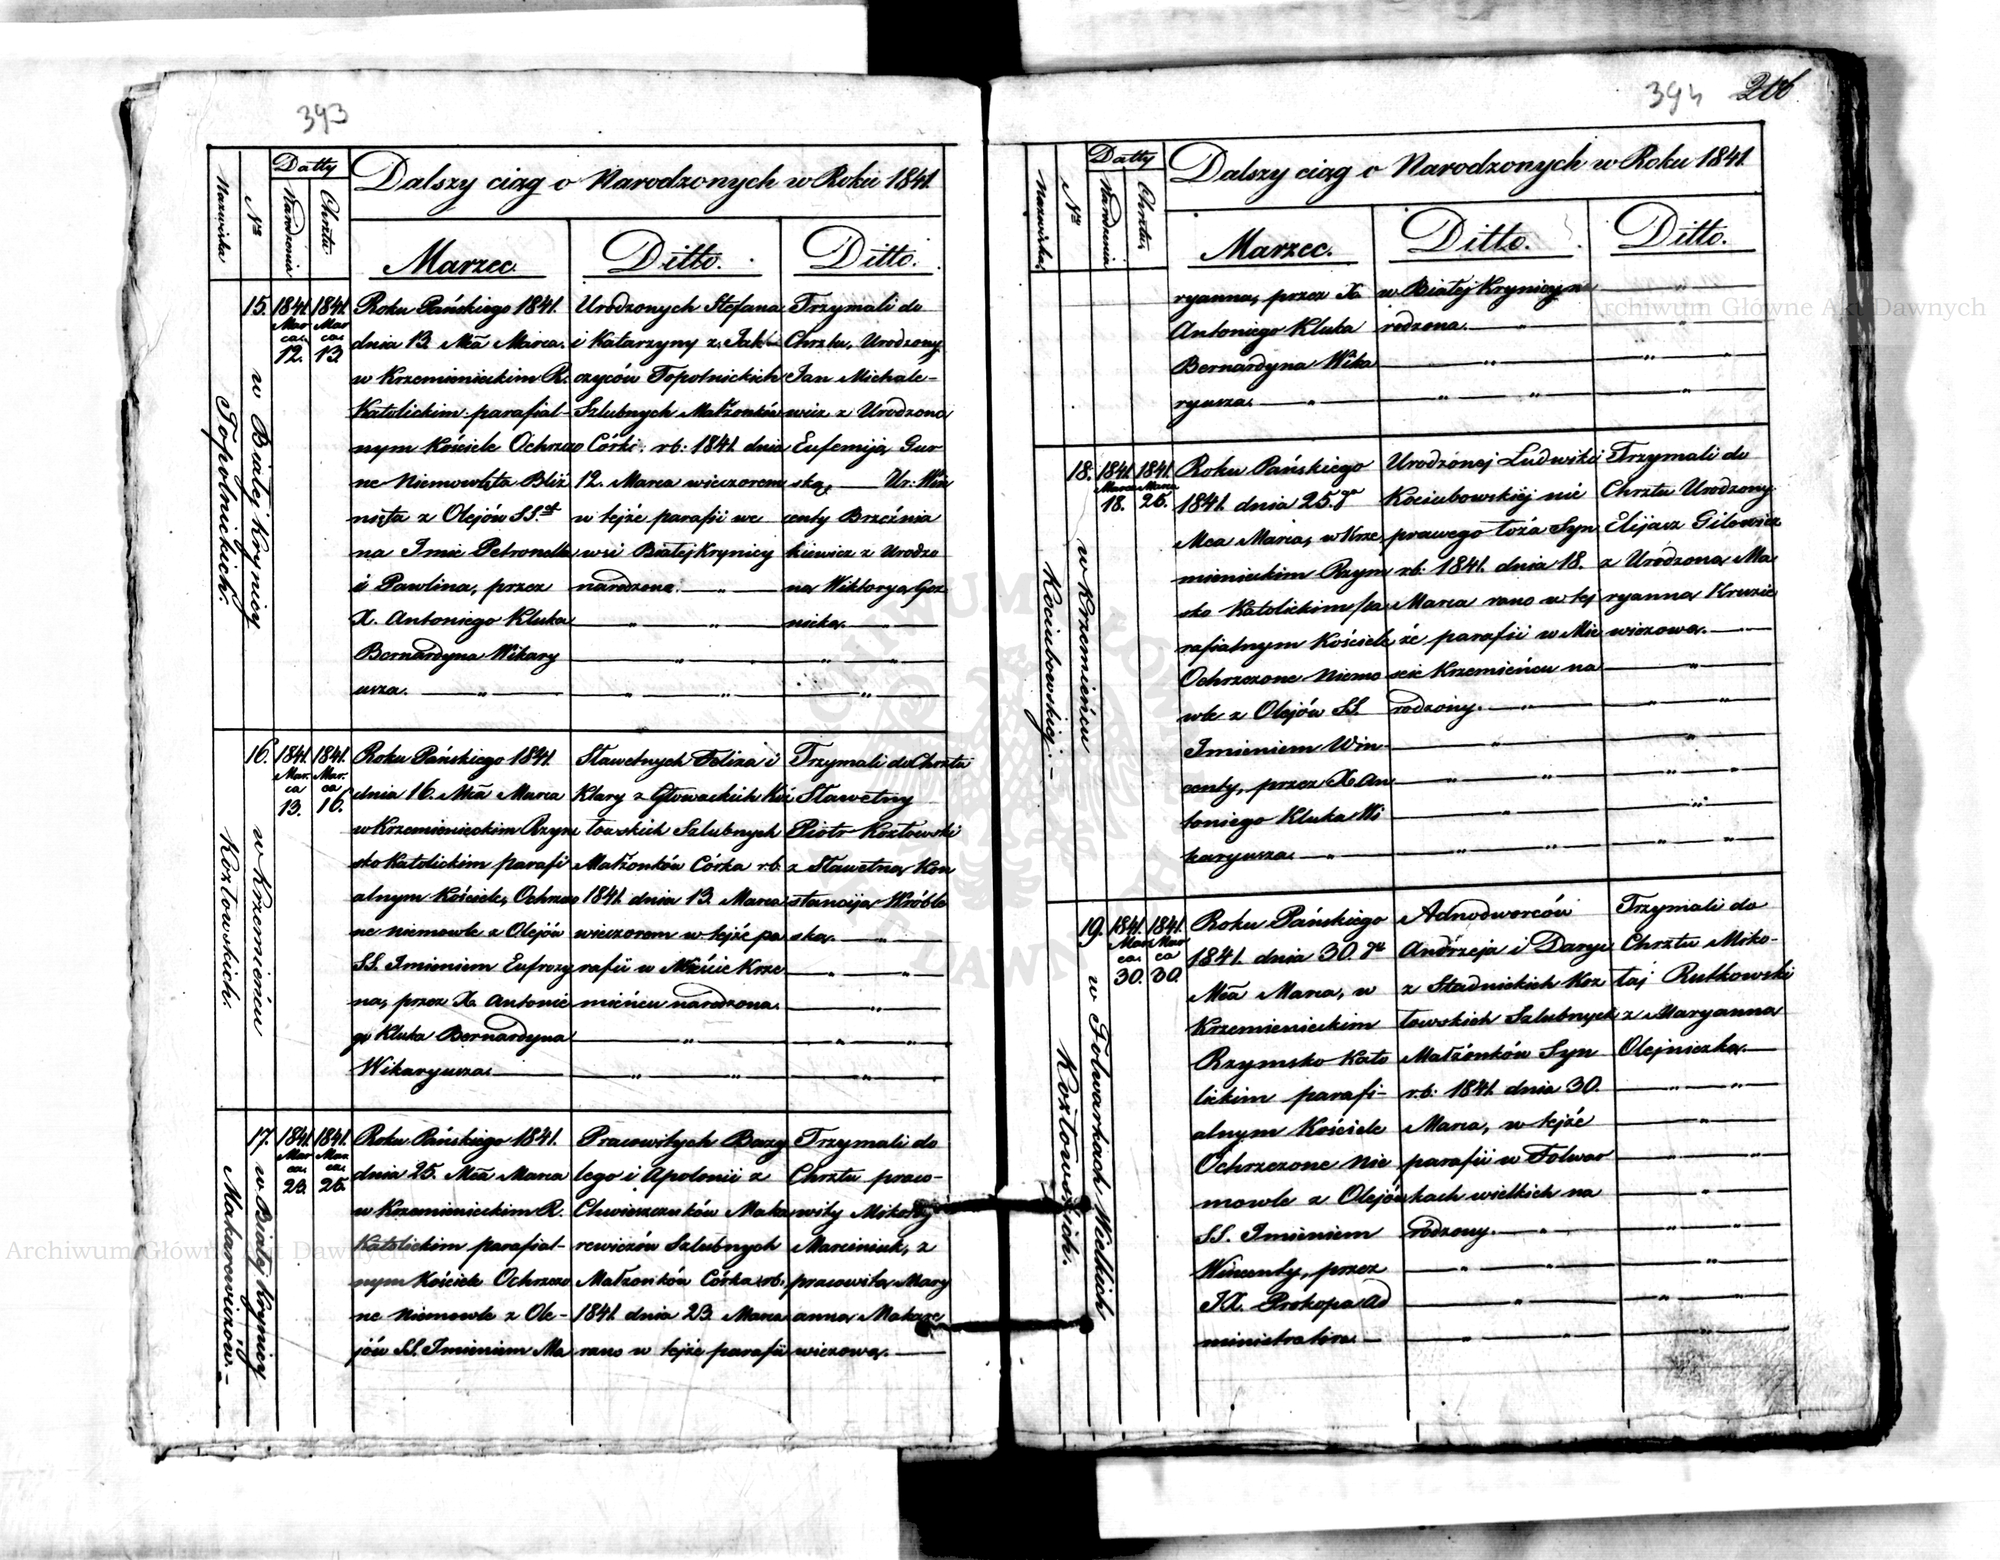 393
Datty
Nazwiska
Nro
Narodzenia
Chrztu
Dalszy ciąg o Narodzonych w Roku 1841.
Marzec.
Ditto.
Ditto.
15.
w Białej Krynicy
Topolnickich.
1841.
Mar
ca.
12.
1841.
Mar
ca.
13.
Roku Pańskiego 1841.
dnia 13. Mca Marca.
w Krzemienieckim R.
Katolickim parafial-
nym Kościele Ochrzco
ne Niemowlęta Bliź
nięta z Olejów SS.
na Imie Petronella
i Pawlina, przez
X. Antoniego Kluka
Bernardyna Wikary
usza.
Urodzonych Stefana
i Katarzyny z Jak
czyców Topolnickich
Szlubnych Małżonków
Córki. rb: 1841. dnia
12. Marca wieczorem
w tejże parafii we
wsi Białej Krynicy
narodzone.
Trzymali do
Chrztu, Urodzony
Jan Michale-
wicz z Urodzoną
Eufemiją Gur
ską, Ur: Win
centy Brzeźnia
kiewicz z Urodzo
ną Wiktoryą Goz
nicka.
16.
w Krzemieńcu
Kozłowskich.
1841.
Mar.
ca
13.
1841.
Mar.
ca
16.
Roku Pańskiego 1841.
dnia 16. Mca Marca
w Krzemienieckim Rzym
sko Katolickim parafi
alnym Kościele, Ochrzco
ne niemowle z Olejów
SS. Imieniem Eufrozy
na, przez X. Antonie
go Kluka Bernardyna
Wikaryusza.
Sławetnych Felixa i
Klary z Głowackich Ko
złowskich Szlubnych
Małżonków Córka rb.
1841. dnia 13. Marca
wieczorem w tejże pa
rafii w Mieście Krze
mieńcu narodzona.
Trzymali do Chrztu
Sławetny
Piotr Kozłowski
z Sławetną Kon
stancyją Wróble
ską.
17.
w Białej Krynicy
Makarewiczów.
1841.
Mar
ca.
23.
1841.
Mar.
ca.
25.
Roku Pańskiego 1841.
dnia 25. Mca Marca
w Krzemienieckim R.
Katolickim parafial-
nym Kościele Ochrzco
ne Niemowle z Ole-
jów SS. Imieniem Ma
Pracowitych Bazy
lego i Apolonii z
Chwieszczuków Maka
rewiczów Szlubnych
Małżonków Córka rb.
1841. dnia 23. Marca
rano w tejże parafii
Trzymali do
Chrztu praco-
wity Mikołaj
Marciniuk, z
pracowitą Mary
anną Makare
wiczową.
394
206
Datty
Nazwiska
Nro
Narodzenia
Chrztu,
Dalszy ciąg o Narodzonych w Roku 1841.
Marzec.
Ditto.
Ditto.
ryanna, przez X.
Antoniego Kluka
Bernardyna Wika
ryusza.
w Białej Krynicy na
rodzona.
18.
w Krzemieńcu
Kociubowskiej.
1841.
Marca
18.
1841.
Marca.
25.
Roku Pańskiego
1841. dnia 25.go
Mca Marca, w Krze
mienieckim Rzym
sko Katolickim pa
rafialnym Kościele
Ochrzczone Niemo
wle z Olejów SS.
Imieniem Win-
centy, przez X. An
toniego Kluka Wi
karyusza.
Urodzonej Ludwiki
Kociubowskiej nie
prawego łoża Syn
rb: 1841. dnia 18.
Marca rano w tej
że parafii w Mie
ście Krzemieńcu na
rodzony.
Trzymali do
Chrztu Urodzony
Elijasz Gilowicz
z Urodzoną Ma
ryanną Kruzie
wiczową.
19.
w Folwarkach Wielkich
Kozłowskich.
1841.
Mar
ca.
30.
1841.
Mar
ca
30.
Roku Pańskiego
1841. dnia 30.go
Mca Marca, w
Krzemienieckim
Rzymsko Kato
lickim parafi-
alnym Kościele
Ochrzczone Nie
mowle z Olejów
SS. Imieniem
Wincenty, przez
JX. Prokopa Ad
ministratora.
Adnodworców
Andrzeja i Daryi
z Stadnickich Koz
łowskich Szlubnych
Małżonków Syn
rb: 1841. dnia 30.
Marca, w tejże
parafii w Folwar
kach wielkich na
rodzony.
Trzymali do
Chrztu Miko-
łaj Rutkowski
z Maryanną
Olejniczką.
Archiwum Główne Akt Dawnych
Archiwum Główne Akt Dawnych